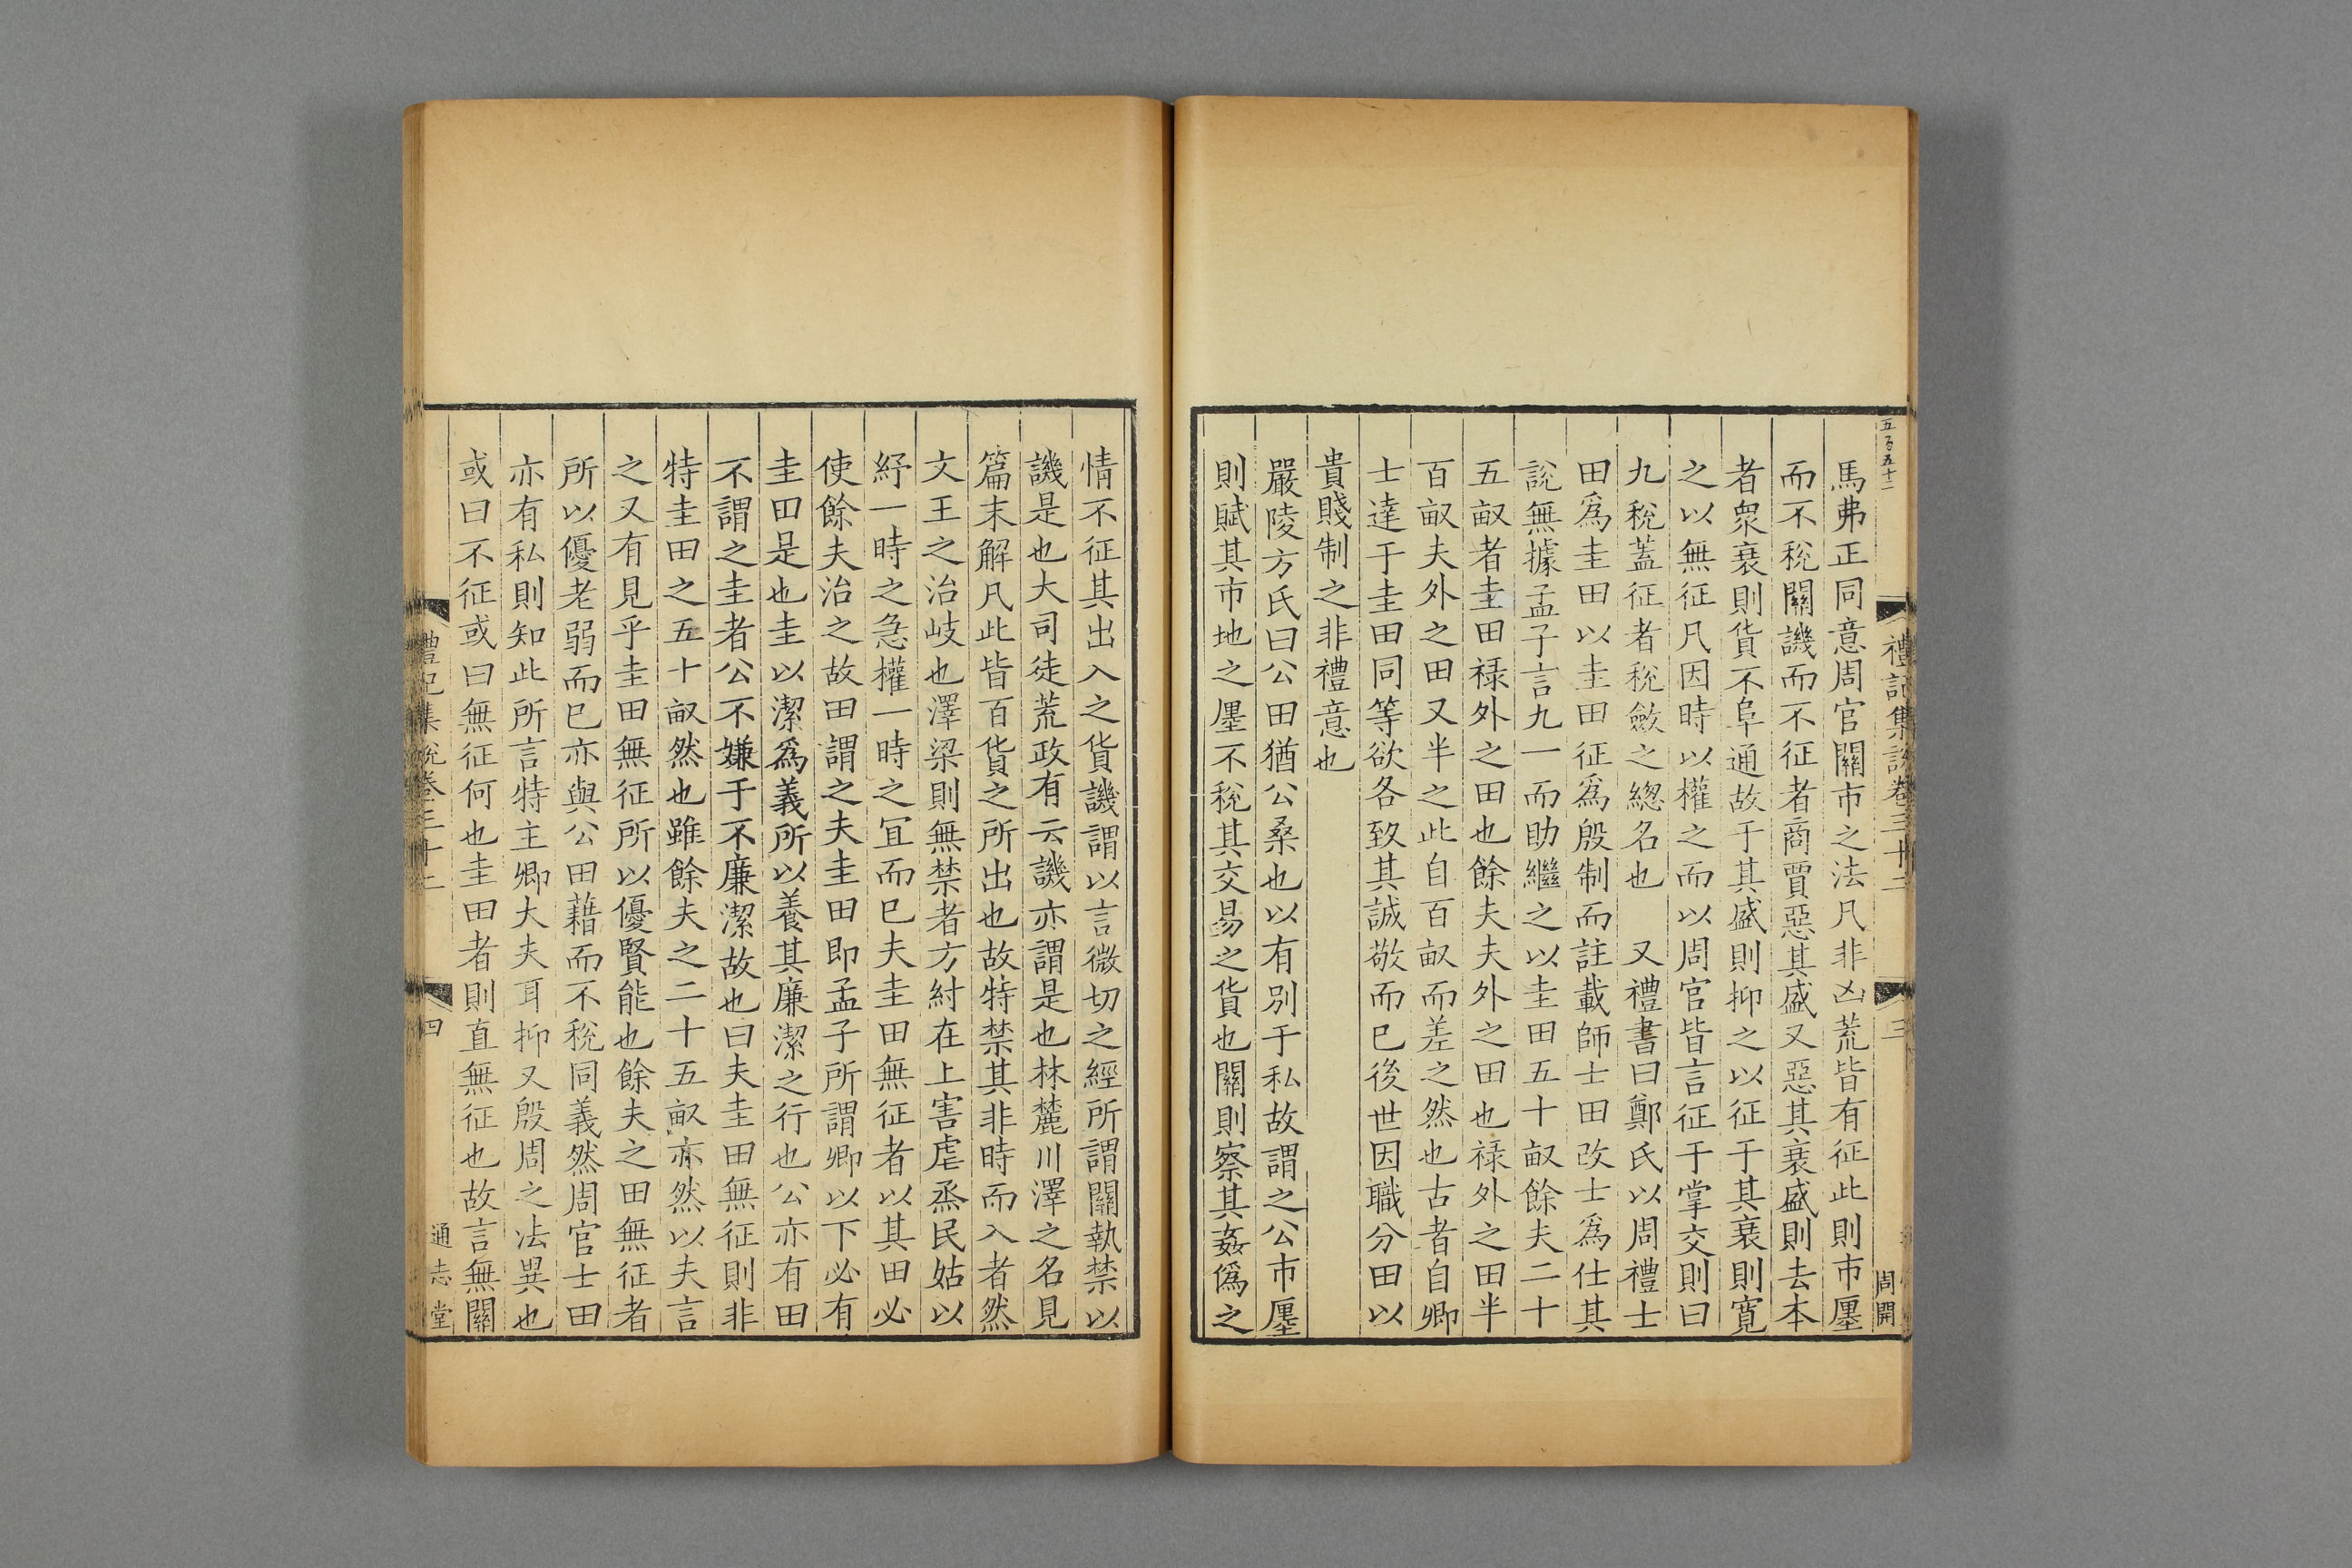 五百五十二
禮記集說卷三十二
三
周開
馬弗正同意周官關市之法凡非凶荒皆有征此則市廛
而不稅關譏而不征者商賈惡其盛又惡其衰盛則去本
者衆衰則貨不阜通故于其盛則抑之以征于其衰則寬
之以無征凡因時以權之而以周官皆言征于掌交則曰
九稅蓋征者稅斂之緫名也　又禮書曰鄭氏以周禮士
田爲圭田以圭田征爲殷制而註載師士田改士爲仕其
說無據孟子言九一而助繼之以圭田五十畝餘夫二十
五畝者圭田禄外之田也餘夫夫外之田也禄外之田半
百畝夫外之田又半之此自百畝而差之然也古者自卿
士達于圭田同等欲各致其誠敬而已後世因職分田以
貴賤制之非禮意也
嚴陵方氏曰公田猶公桑也以有別于私故謂之公市廛
則賦其市地之廛不稅其交易之貨也關則察其姦僞之
情不征其出入之貨譏謂以言微切之經所謂關執禁以
譏是也大司徒荒政有云譏亦謂是也林麓川澤之名見
篇末解凡此皆百貨之所出也故特禁其非時而入者然
文王之治岐也澤梁則無禁者方紂在上害虐烝民姑以
紓一時之急權一時之宜而已夫圭田無征者以其田必
使餘夫治之故田謂之夫圭田即孟子所謂卿以下必有
圭田是也圭以潔爲義所以養其廉潔之行也公亦有田
不謂之圭者公不嫌于不廉潔故也曰夫圭田無征則非
特圭田之五十畝然也雖餘夫之二十五畝亦然以夫言
之又有見乎圭田無征所以優賢能也餘夫之田無征者
所以優老弱而已亦與公田藉而不稅同義然周官士田
亦有私則知此所言特主卿大夫耳抑又殷周之法異也
或曰不征或曰無征何也圭田者則直無征也故言無關
禮記集說卷三十二
四
通志堂